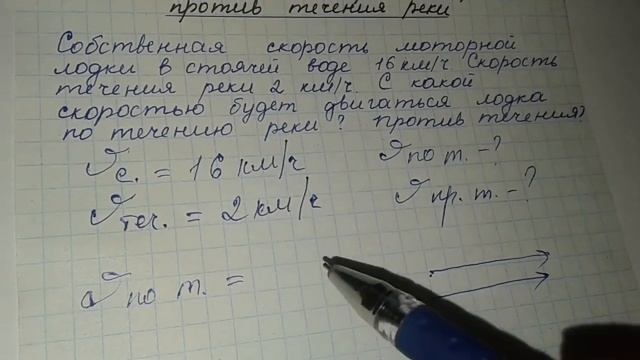 против течения реки
Собственная скорость моторной
лодки в стоячей воде 16 км/ч Скорость
течения реки 2 км/ч. С какой
скоростью будет двигаться лодка
по течению реки? против течения?
Vс. = 16 км/ч Vпо т. - ?
Vтеч. = 2 км/ч Vпр. т. - ?
Vпо т. =